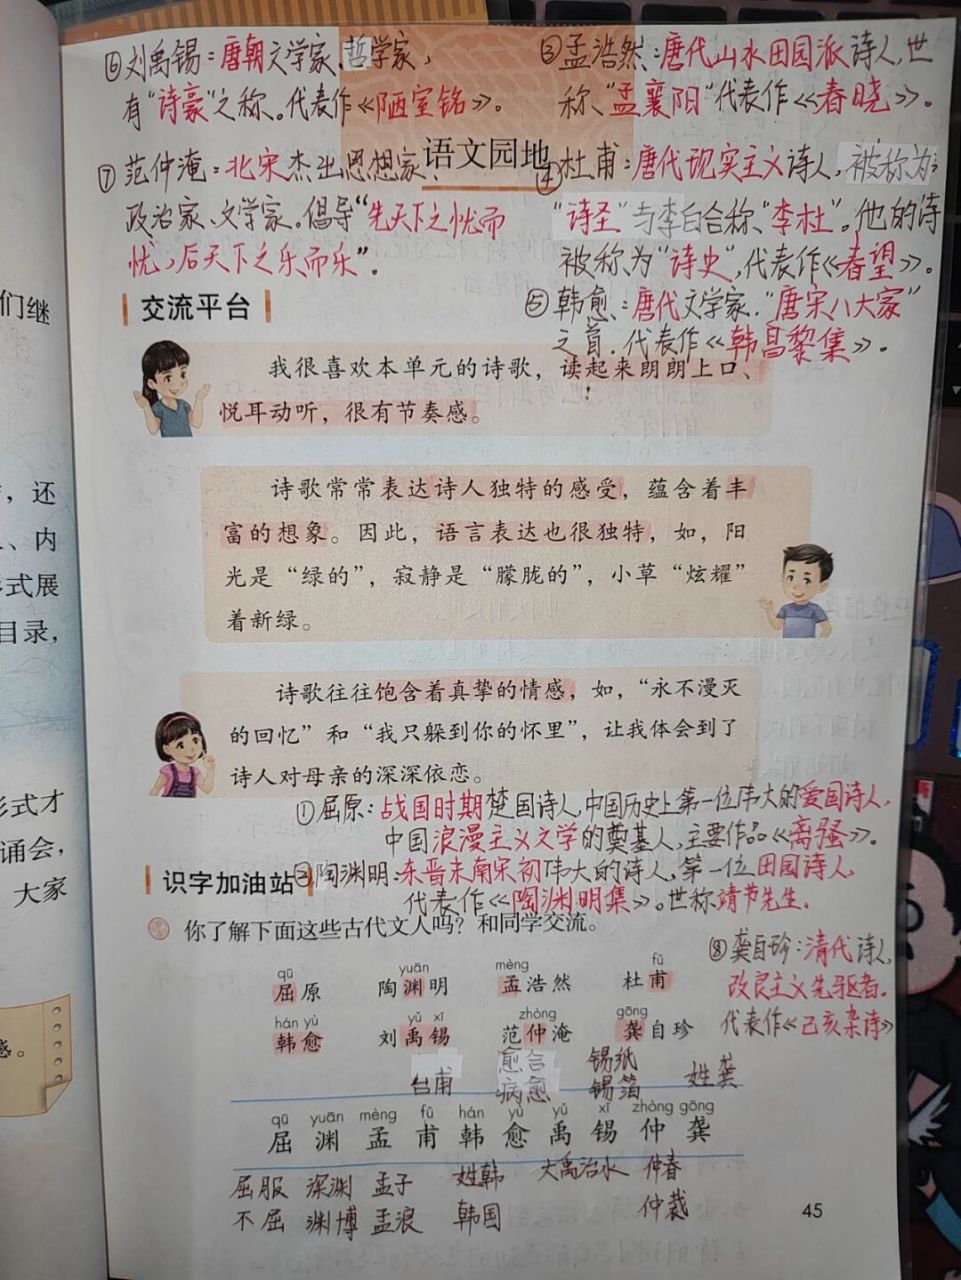 ⑥刘禹锡：唐朝文学家、哲学家，
有“诗豪”之称。代表作《陋室铭》。
③孟浩然：唐代山水田园派诗人，世
称“孟襄阳”代表作《春晓》。
语文园地
⑦范仲淹：北宋杰出思想家、
政治家、文学家。倡导“先天下之忧而
忧，后天下之乐而乐”。
④杜甫：唐代现实主义诗人，被称为
“诗圣”与李白合称“李杜”。他的诗
被称为“诗史”，代表作《春望》。
⑤韩愈：唐代文学家.“唐宋八大家”
之首.代表作《韩昌黎集》。
交流平台
我很喜欢本单元的诗歌，读起来朗朗上口、
悦耳动听，很有节奏感。
诗歌常常表达诗人独特的感受，蕴含着丰
富的想象。因此，语言表达也很独特，如，阳
光是“绿的”，寂静是“朦胧的”，小草“炫耀”
着新绿。
诗歌往往饱含着真挚的情感，如，“永不漫灭
的回忆”和“我只躲到你的怀里”，让我体会到了
诗人对母亲的深深依恋。
①屈原：战国时期楚国诗人，中国历史上第一位伟大的爱国诗人，
中国浪漫主义文学的奠基人，主要作品《离骚》。
识字加油站
②陶渊明：东晋末南宋初伟大的诗人，第一位田园诗人
代表作《陶渊明集》。世称靖节先生.
你了解下面这些古代文人吗？和同学交流。
⑧龚自珍：清代诗人，
改良主义先驱者.
代表作《己亥杂诗》
qū yuān mèng fǔ
屈原 陶渊明 孟浩然 杜甫
hán yù yǔ xī zhòng gōng
韩愈 刘禹锡 范仲淹 龚自珍
愈合 锡纸
台甫 病愈 锡箔 姓龚
qū yuān mèng fǔ hán yù yǔ xī zhòng gōng
屈 渊 孟 甫 韩 愈 禹 锡 仲 龚
屈服 深渊 孟子 姓韩 大禹治水 仲春
不屈 渊博 孟浪 韩国 仲裁
45
们继
，还
、内
形式展
目录，
形式才
诵会，
大家
感。